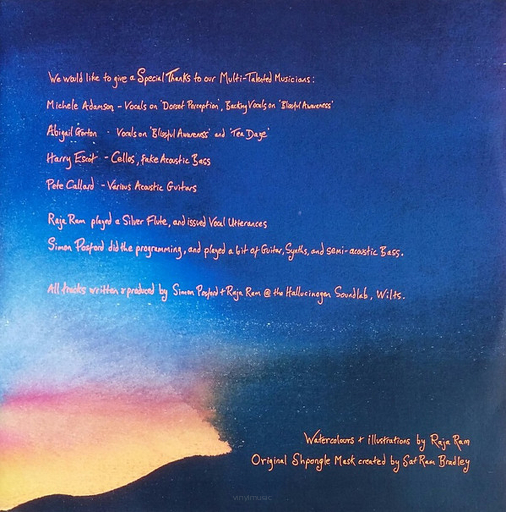 We would like to give a Special Thanks to our Multi-Talented Musicians:
Michele Adamson - Vocals on 'Dorset Perception', Backing Vocals on 'Blissful Awareness'
Abigail Gorton - Vocals on 'Blissful Awareness' and 'Tea Daze'
Harry Escott - Cellos, Fake Acoustic Bass
Pete Callard - Various Acoustic Guitars
Raja Ram played a Silver Flute, and issued Vocal Utterances
Simon Posford did the programming, and played a bit of Guitar, Synths, and semi-acoustic Bass.
All tracks written & produced by Simon Posford + Raja Ram @ the Hallucinogen Soundlab, Wilts.
Watercolours + illustrations by Raja Ram
Original Shpongle Mask created by Sat Ram Bradley
vinylmusic